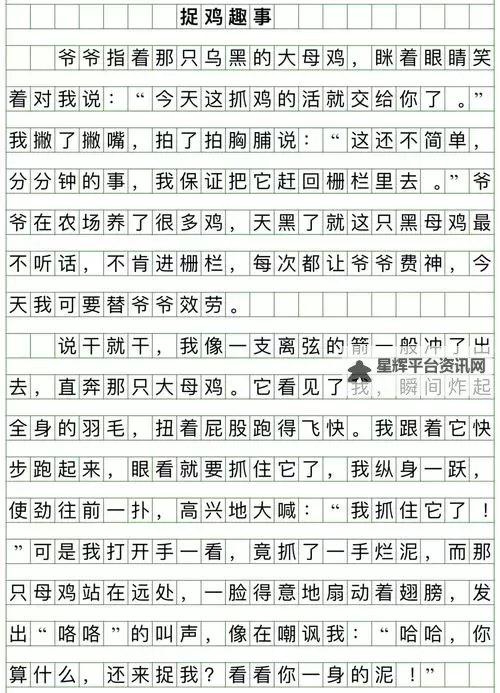 捉鸡趣事
爷爷指着那只乌黑的大母鸡，眯着眼睛笑
着对我说：“今天这抓鸡的活就交给你了。”
我撇了撇嘴，拍了拍胸脯说：“这还不简单，
分分钟的事，我保证把它赶回栅栏里去。”爷
爷在农场养了很多鸡，天黑了就这只黑母鸡最
不听话，不肯进栅栏，每次都让爷爷费神，今
天我可要替爷爷效劳。
说干就干，我像一支离弦的箭一般冲了出
去，直奔那只大母鸡。它看见了我，瞬间炸起
星辉平台资讯网
全身的羽毛，扭着屁股跑得飞快。我跟着它快
步跑起来，眼看就要抓住它了，我纵身一跃，
使劲往前一扑，高兴地大喊：“我抓住它了！
”可是我打开手一看，竟抓了一手烂泥，而那
只母鸡站在远处，一脸得意地扇动着翅膀，发
出“咯咯”的叫声，像在嘲讽我：“哈哈，你
算什么，还来捉我？看看你一身的泥！”